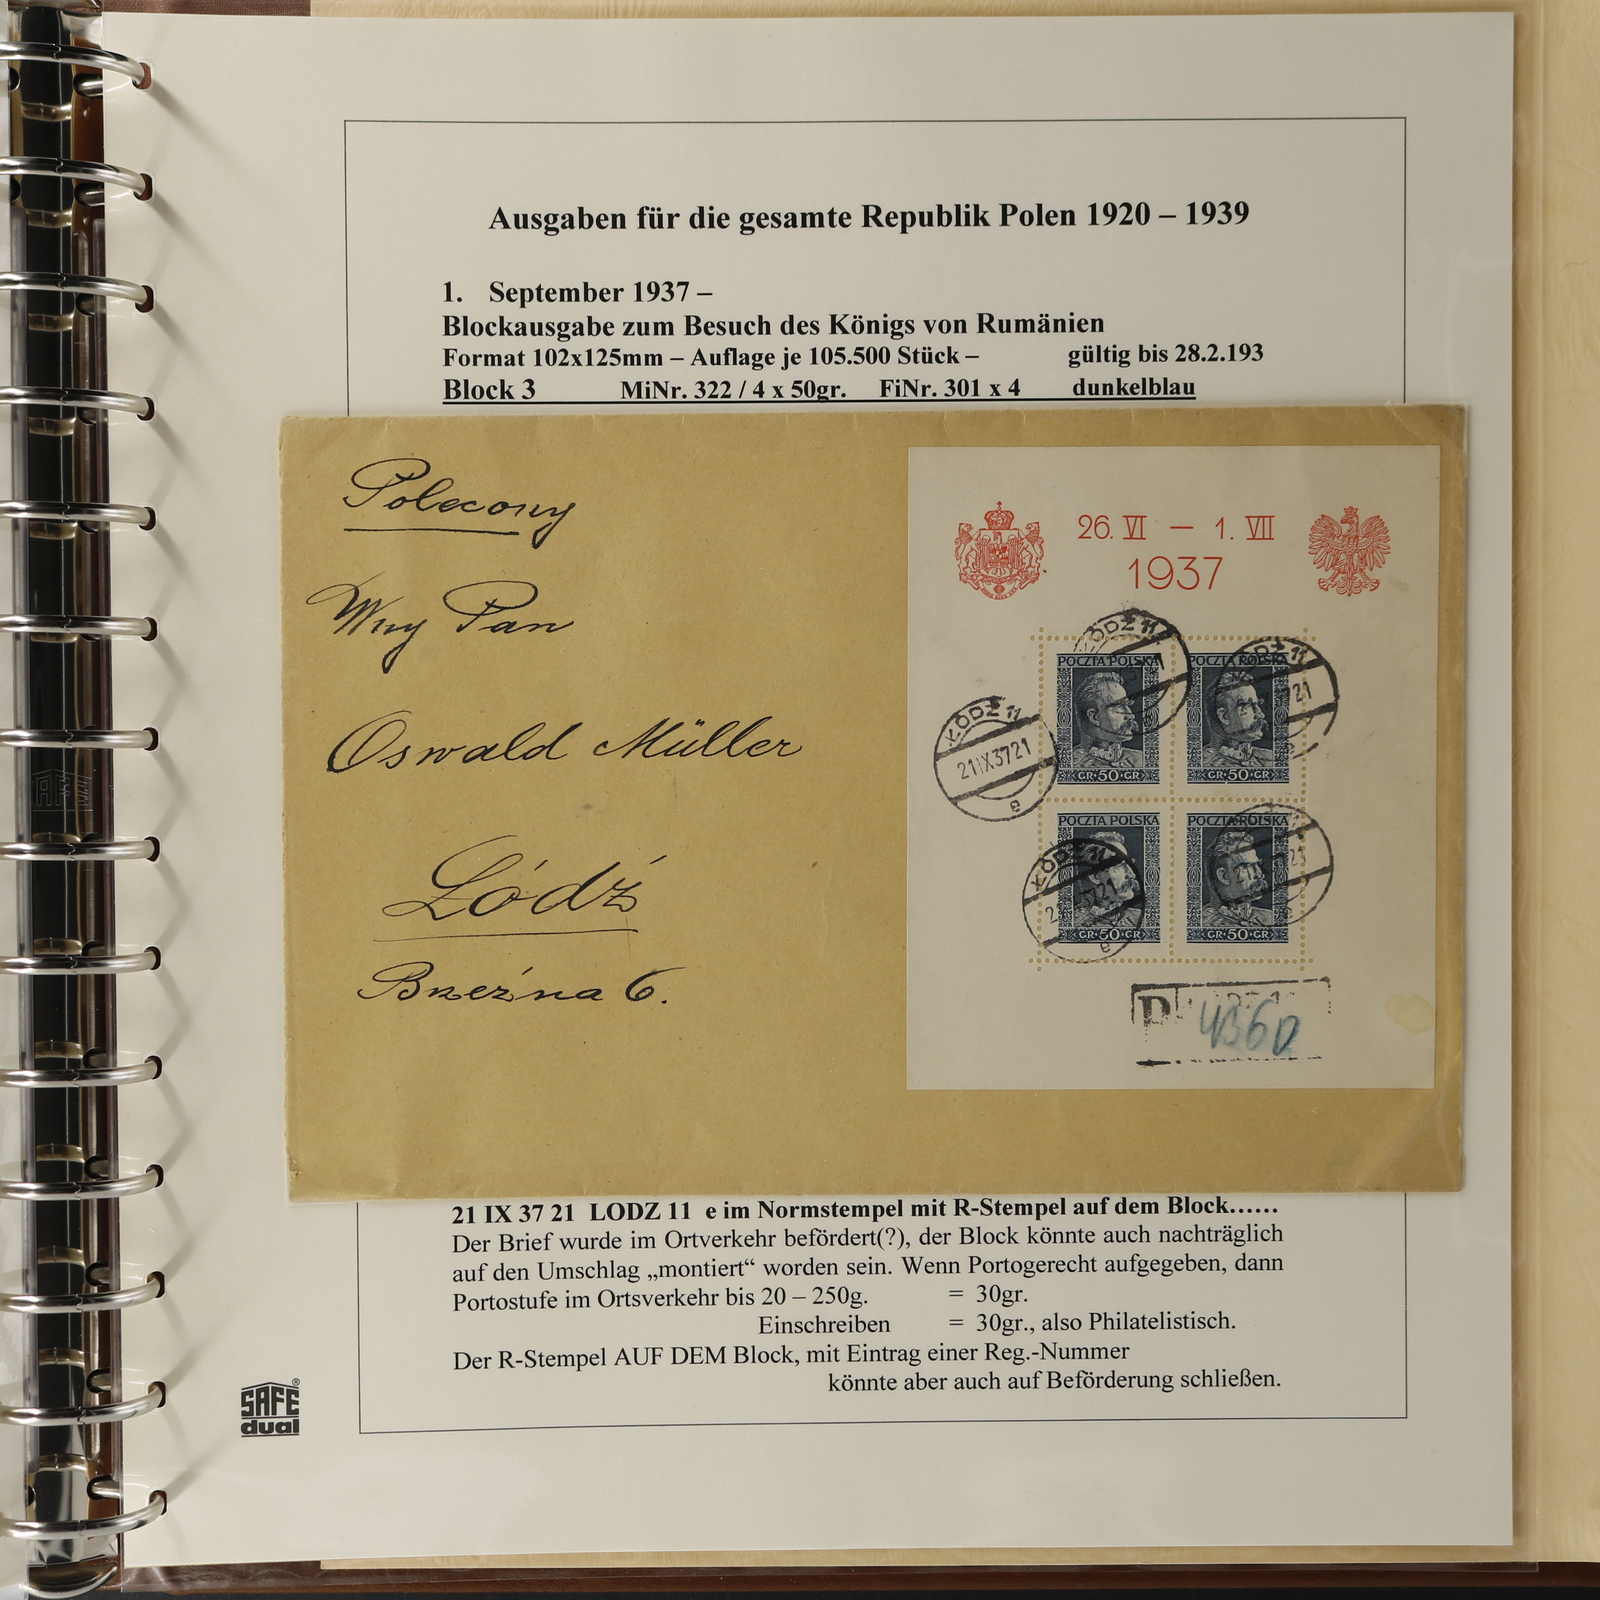 Ausgaben für die gesamte Republik Polen 1920 – 1939
1. September 1937 –
Blockausgabe zum Besuch des Königs von Rumänien
Format 102x125mm – Auflage je 105.500 Stück – gültig bis 28.2.193
Block 3 MiNr. 322 / 4 x 50gr. FiNr. 301 x 4 dunkelblau
Polecony
Wny Pan
Oswald Müller
Łódź
Brzeźna 6.
26. VI — 1. VII
1937
ŁÓDŹ 11
ŁÓDŹ 11
21
POCZTA POLSKA
POCZTA POLSKA
GR·50·GR
GR·50·GR
ŁÓDŹ 11
21 IX 37 21
e
POCZTA POLSKA
POCZTA POLSKA
GR·50·GR
GR·50·GR
ŁÓDŹ 11
e
R
21 IX 37 21 LODZ 11 e im Normstempel mit R-Stempel auf dem Block……
Der Brief wurde im Ortverkehr befördert(?), der Block könnte auch nachträglich
auf den Umschlag „montiert“ worden sein. Wenn Portogerecht aufgegeben, dann
Portostufe im Ortsverkehr bis 20 – 250g. = 30gr.
Einschreiben = 30gr., also Philatelistisch.
Der R-Stempel AUF DEM Block, mit Eintrag einer Reg.-Nummer
könnte aber auch auf Beförderung schließen.
SAFE®
dual